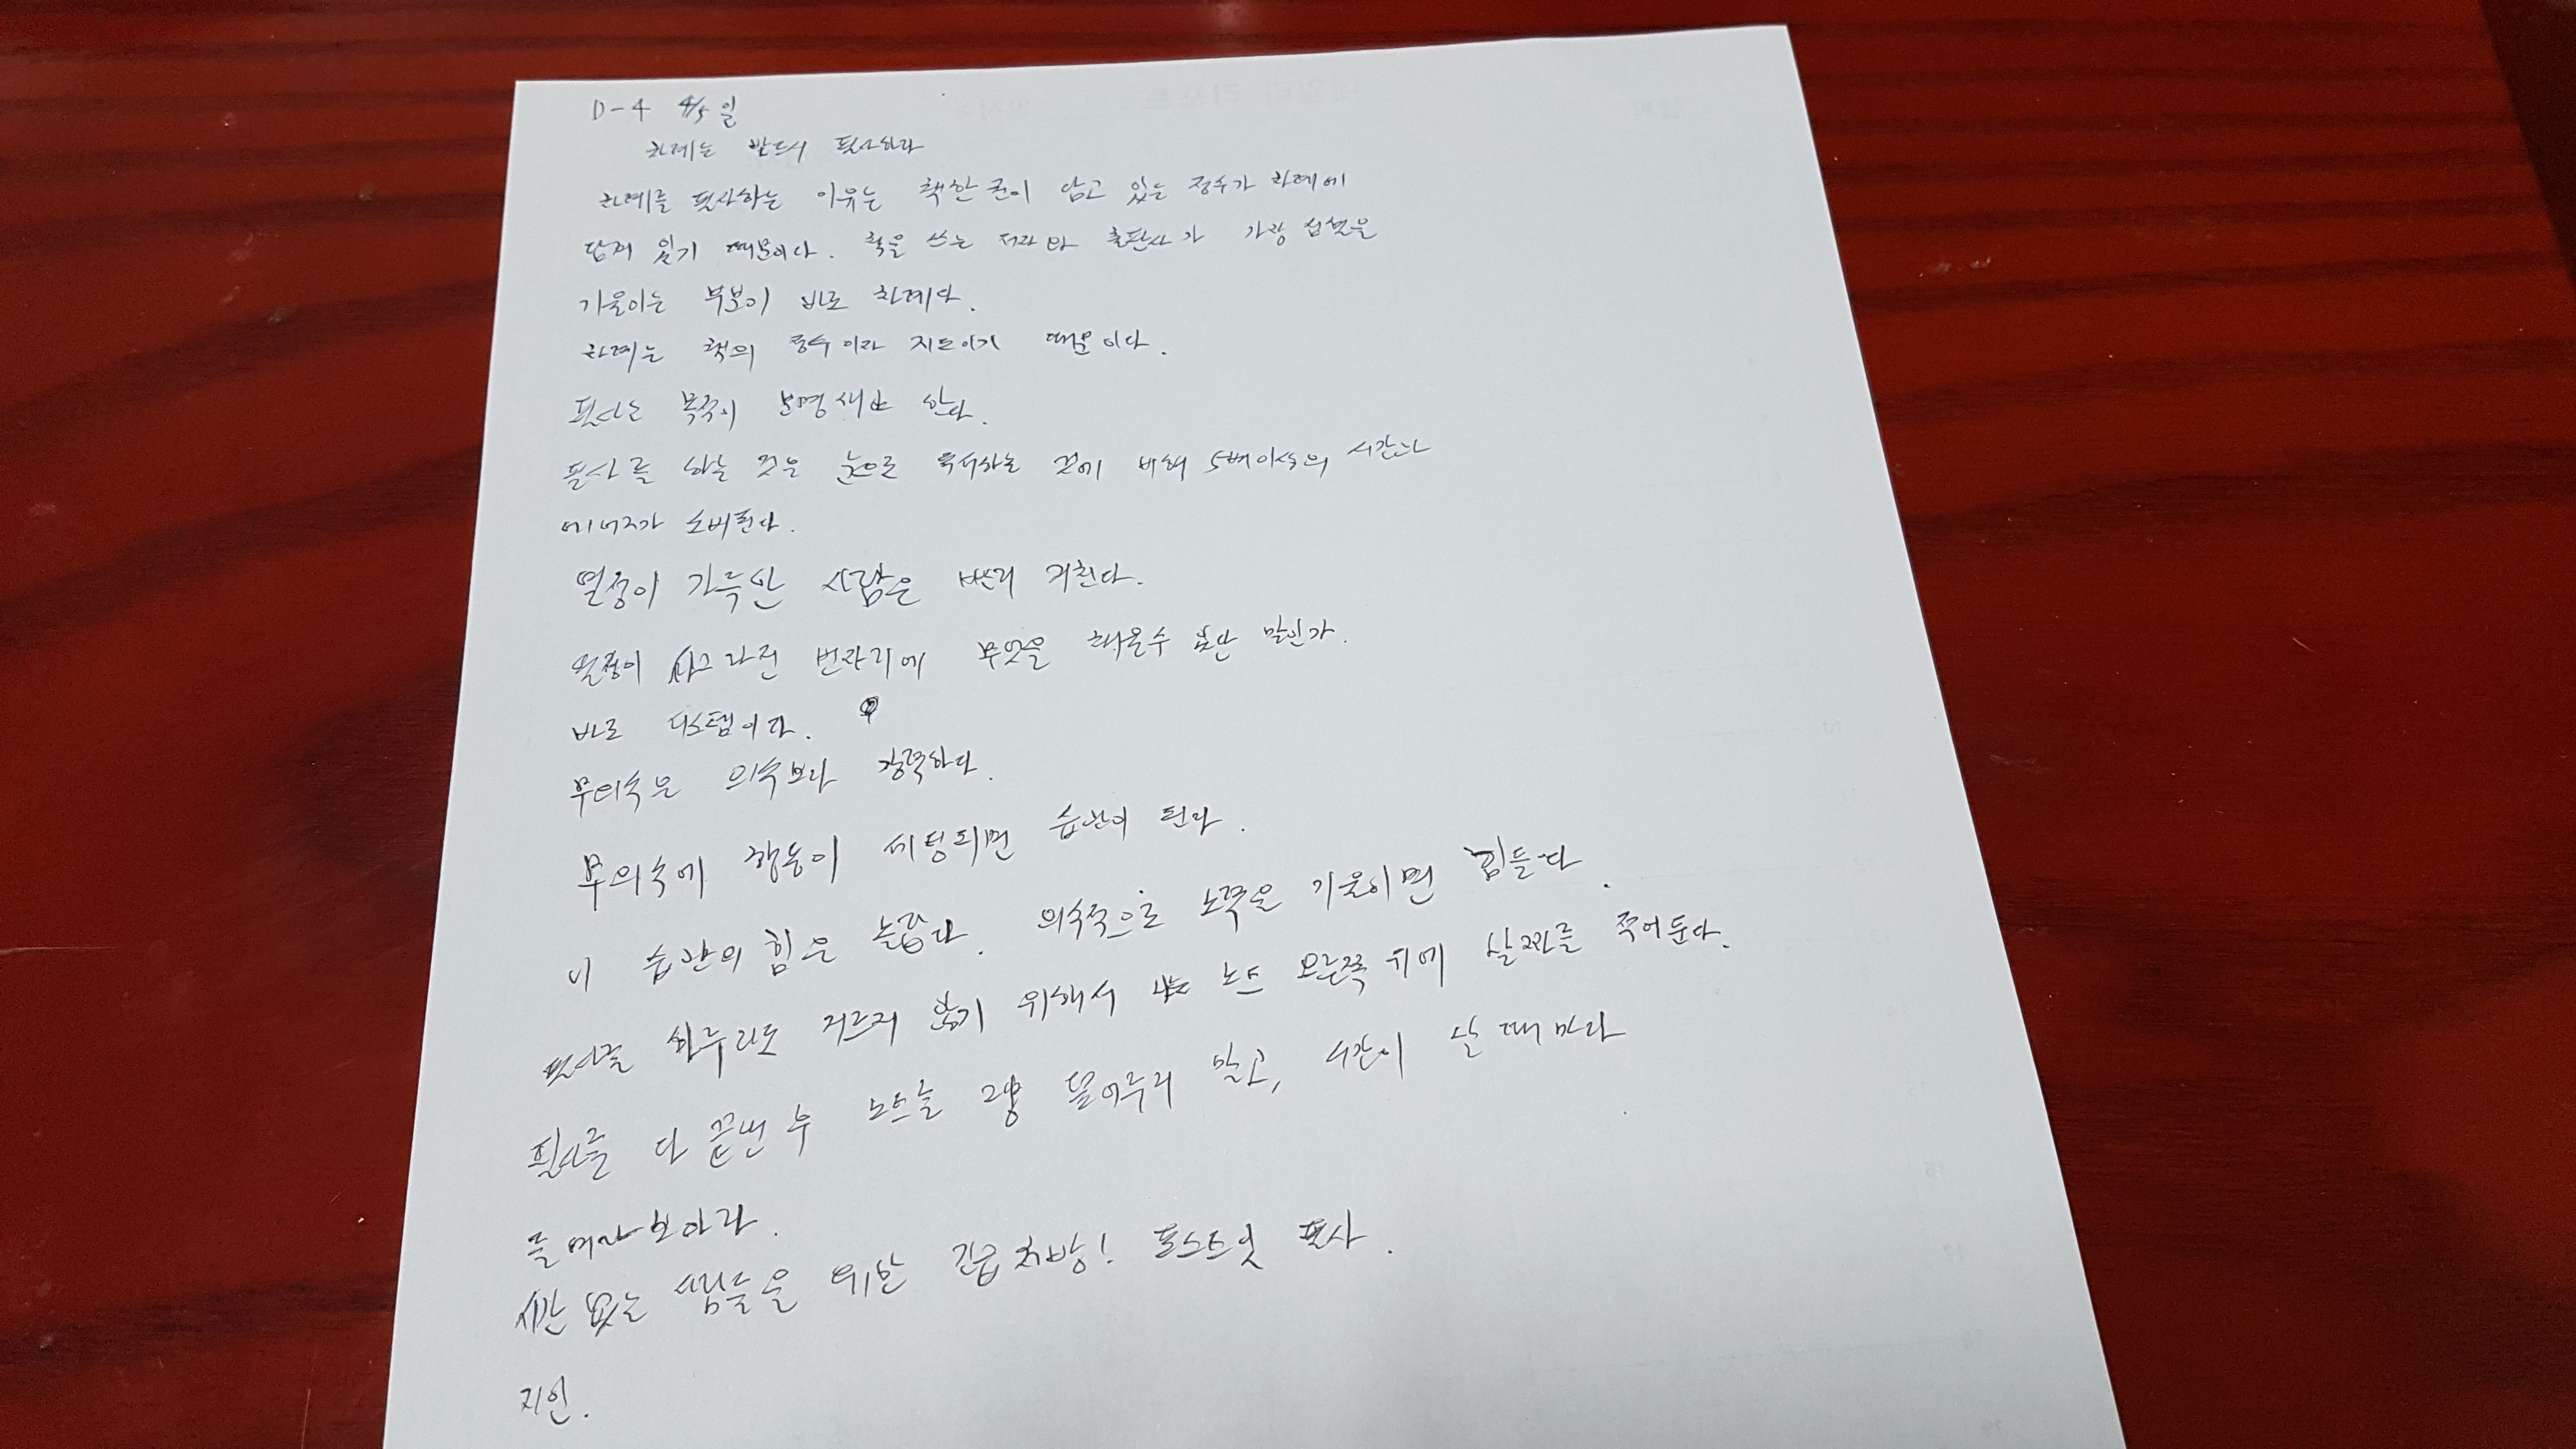 D-4 4/5일
차례는 반드시 필사하라
차례를 필사하는 이유는 책한권이 담고 있는 정수가 차례에
담겨 있기 때문이다. 책을 쓰는 저자와 출판사가 가장 심혈을
기울이는 부분이 바로 차례다.
차례는 책의 정수이자 지도이기 때문이다.
필사는 목적이 분명해야 한다.
필사를 하는 것은 눈으로 독서하는 것에 비해 5배이상의 시간과
에너지가 소비된다.
열정이 가득한 사람은 빨리 지친다.
열정이 사그라진 빈자리에 무엇을 채울수 있단 말인가.
바로 시스템이다.
무의식은 의식보다 강력하다.
무의식에 행동이 세팅되면 습관이 된다.
이 습관의 힘은 놀랍다. 의식적으로 노력을 기울이면 힘들다.
필사를 하루라도 거르지 않기 위해서 노트 오른쪽 위에 날짜를 적어둔다.
필사를 다 끝낸 후 노트를 그냥 덮어두지 말고, 시간이 날 때마다
들여다보아라.
시간 없는 사람들을 위한 긴급처방! 포스트잇 필사.
지인.
데일리 리포트
날짜
10
11
12
16
17